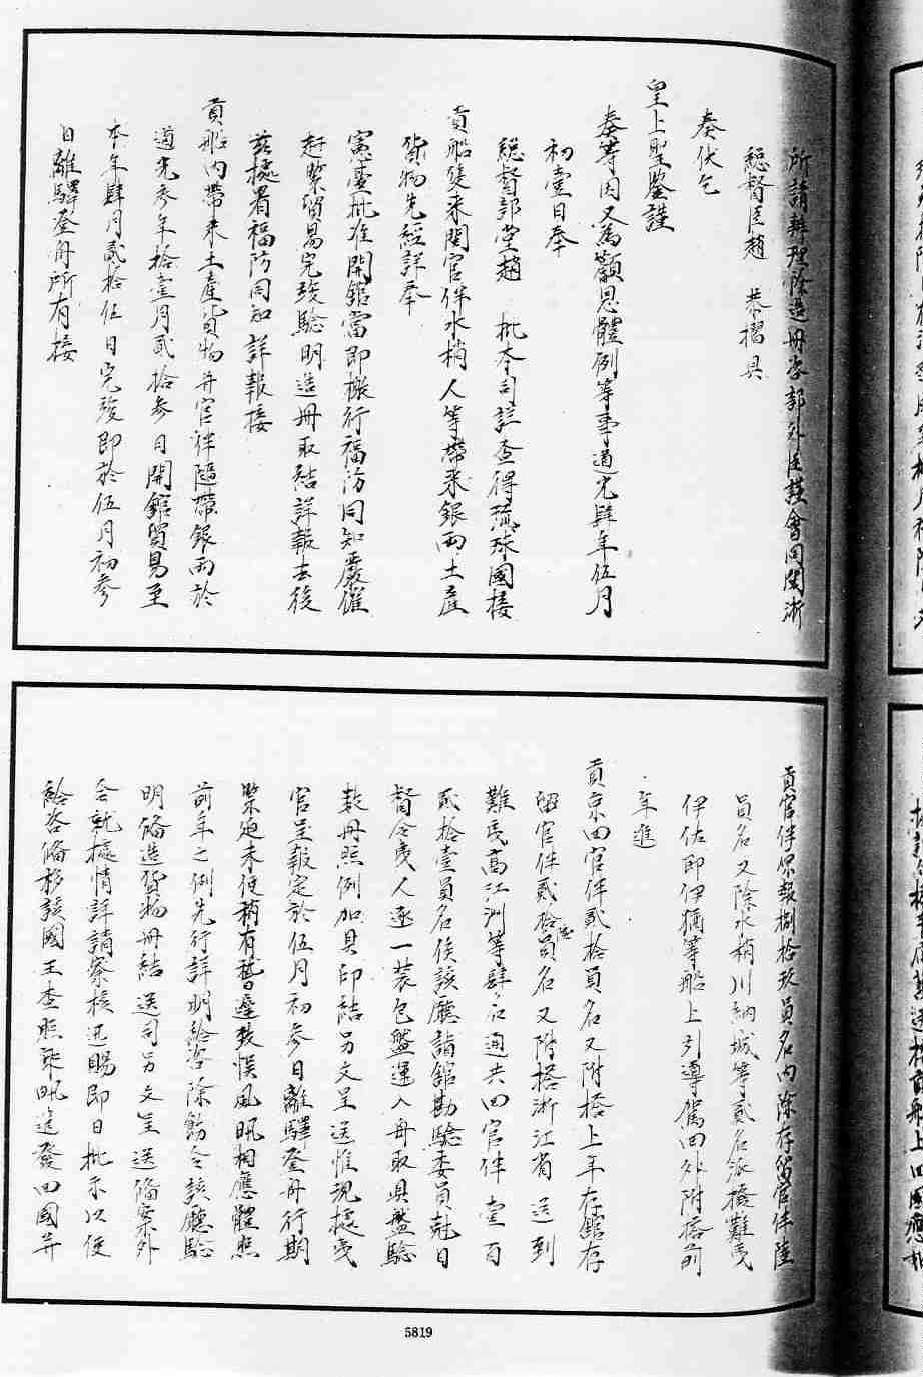 所請辦理除造冊咨部外臣謹會同閩浙
總督臣趙　恭摺具
奏伏乞
皇上聖鑒謹
奏等因又為籲恩體例等事道光肆年伍月
初壹日奉
總督部堂趙　批本司詳查得琉球國接
貢船隻來閩官伴水梢人等帶來銀兩土產
貨物先經詳奉
憲臺批准開舘當即檄行福防同知嚴催
赶緊貿易完竣驗明造冊取結詳報去後
茲據署福防同知詳報接
貢船內帶來土產貨物并官伴隨帶銀兩於
道光參年拾壹月貳拾參日開舘貿易至
本年肆月貳拾伍日完竣即於伍月初參
日離驛登舟所有接
貢官伴原報捌拾玖員名內除存留官伴陸
員名又除水梢川納城等貳名派撥難夷
伊佐即伊猶等船上引導駕回外附搭前
年進
貢京回官伴貳拾員名又附搭上年存舘存
留官伴貳拾員名又附搭浙江省送到
難民高江洲等肆名通共回官伴壹百
貳拾壹員名俟該廳詣舘勘驗委員尅日
督令夷人逐一裝包盤運入舟取具盤驗
數冊照例加具印結另文呈送惟現據夷
官呈報定於伍月初參日離驛登舟行期
緊迫未便稍有稽遲致悞風帆相應體照
前年之例先行詳明給咨除飭令該廳驗
明備造貨物冊結送司另文呈送備案外
合就據情詳請察核迅賜即日批示以便
給咨備移該國王查照乘帆進發回國并
5819